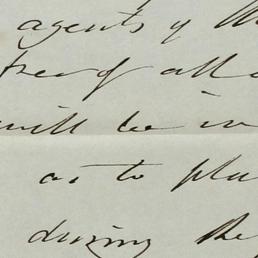 agents of the
free of all
will be in
as to pla
during the